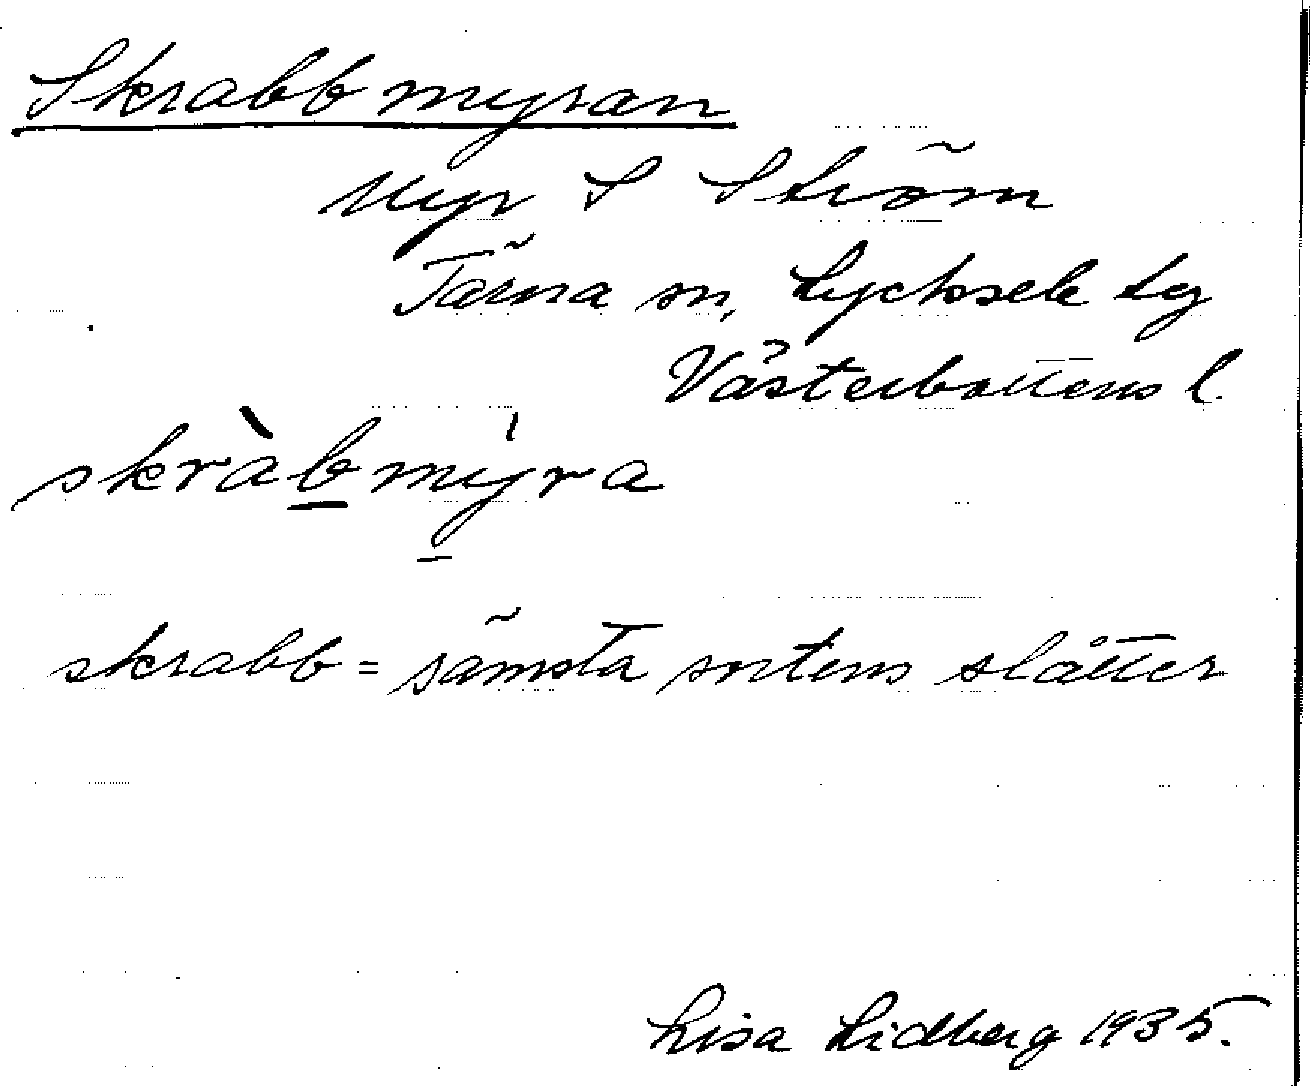 Skrabbmyran
Myr S Ström
Tärna sn, Lycksele tg
Västerbottens l.
skràbmy̍ra
skrabb = sämsta sortens slåtter
Lisa Lidberg 1935.